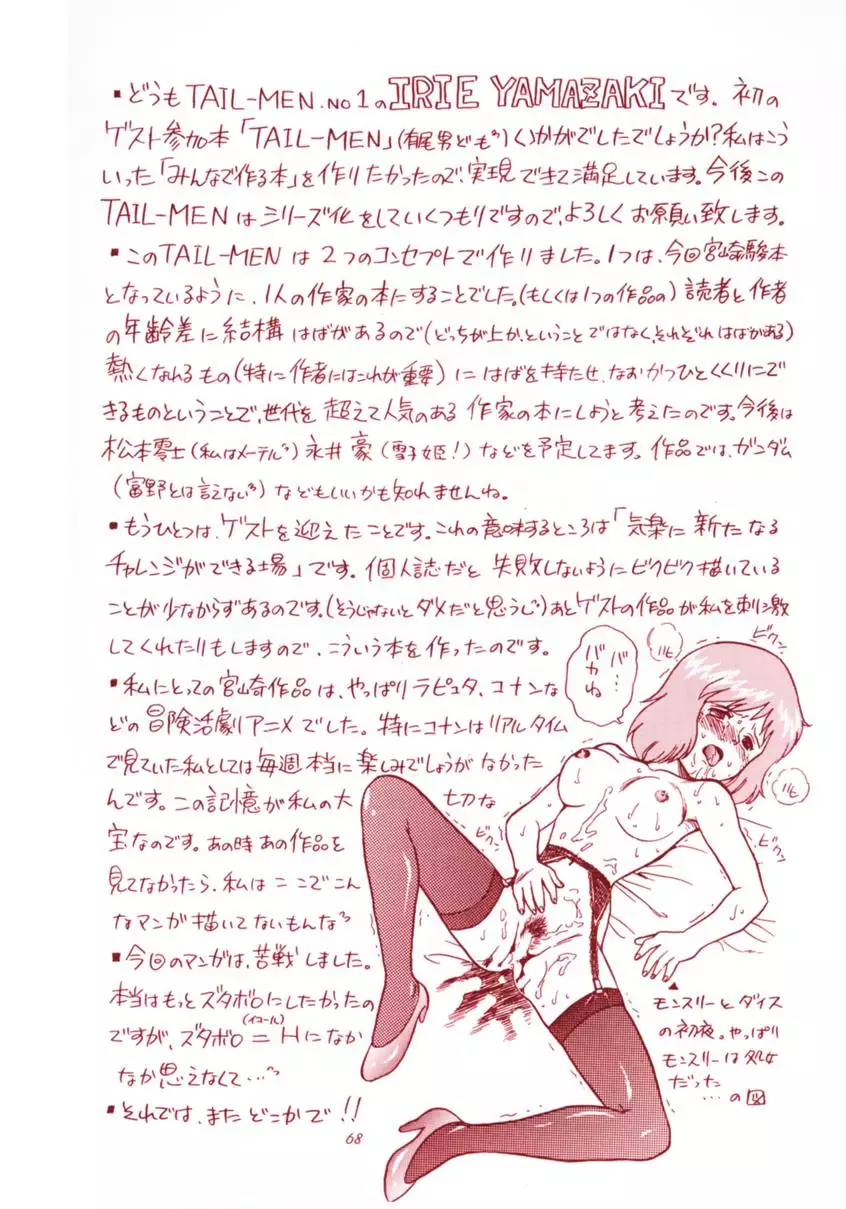 ▪どうもTAIL-MEN.NO1のIRIE YAMAZAKIです。初の
ゲスト参加本「TAIL-MEN」(有尾男ども)いかがでしたでしょうか?私はこう
いった「みんなで作る本」を作りたかったので、実現できて満足しています。今後この
TAIL-MENはシリーズ化をしていくつもりですので、よろしくお願い致します。
▪このTAIL-MENは2つのコンセプトで作りました。1つは、今回宮崎駿本
となっているように、1人の作家の本にすることでした。(もしくは1つの作品の)読者と作者
の年齢差に結構はばがあるので(どっちが上か、ということではなく、それぞれはばがある)
熱くなれるもの(特に作者にはこれが重要)にはばを持たせ、なおかつひとくくりにで
きるものということで、世代を超えて人気のある作家の本にしようと考えたのです。今後は
松本零士(私はメーテル)永井豪(雪子姫!)などを予定してます。作品では、ガンダム
(富野とは言えない)などもいいかも知れませんね。
▪もうひとつは、ゲストを迎えたことです。これの意味するところは「気楽に新たなる
チャレンジができる場」です。個人誌だと失敗しないようにビクビク描いている
ことが少なからずあるのです。(そうじゃないとダメだと思うし)あとゲストの作品が私を刺激
してくれたりもしますので、こういう本を作ったのです。
▪私にとっての宮崎作品は、やっぱりラピュタ、コナンな
どの冒険活劇アニメでした。特にコナンはリアルタイム
で見ていた私としては毎週本当に楽しみでしょうがなかった
んです。この記憶が私の大切な
宝なのです。あの時あの作品を
見てなかったら、私はここでこん
なマンガ描いてないもんな
▪今回のマンガは、苦戦しました。
本当はもっとズタボロにしたかったの
ですが、ズタボロ=(イコール)Hになか
なか思えなくて…
▪それでは、またどこかで!!
バ…
バカね
ビクン
ビクッ
ビクン
ビクン
▲
モンスリーとダイス
の初夜。やっぱり
モンスリーは処女
だった
…の図
68